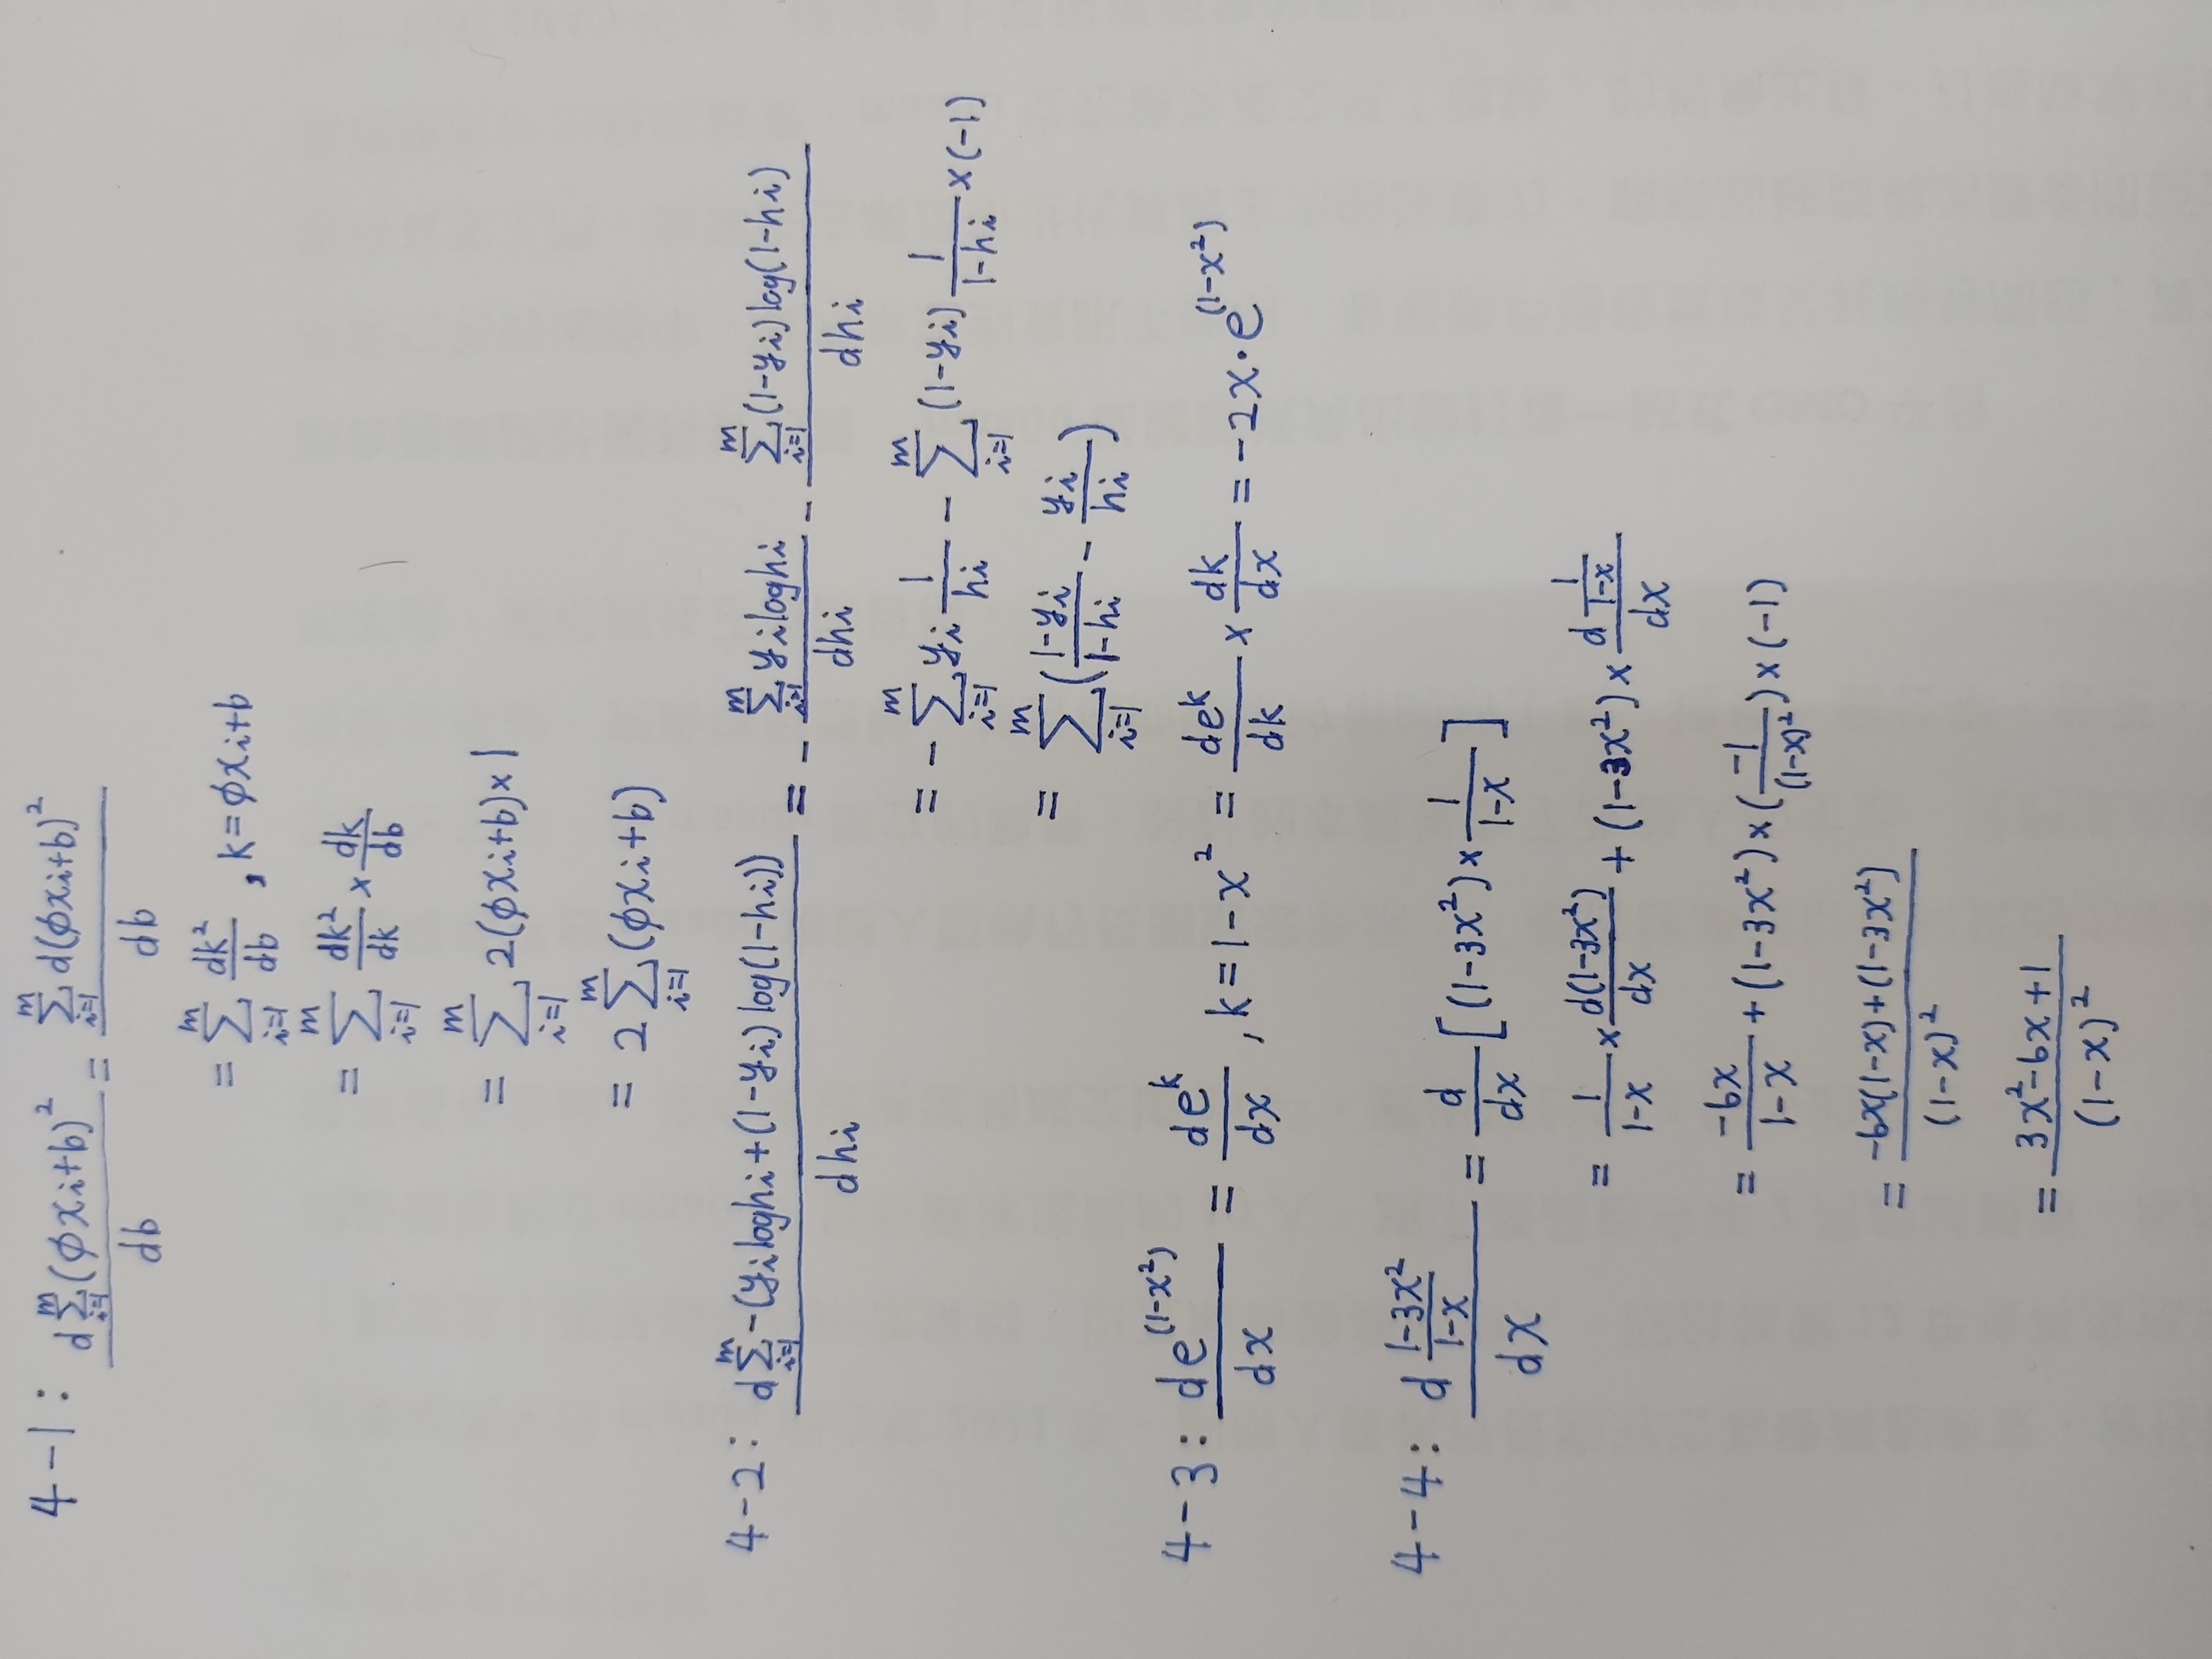 4-1: \frac{d\sum_{i=1}^{m}(\phi x_i+b)^2}{db} = \frac{\sum_{i=1}^{m}d(\phi x_i+b)^2}{db}
= \sum_{i=1}^{m}\frac{dk^2}{db}, k=\phi x_i+b
= \sum_{i=1}^{m}\frac{dk^2}{dk}×\frac{dk}{db}
= \sum_{i=1}^{m}2(\phi x_i+b)×1
= 2\sum_{i=1}^{m}(\phi x_i+b)
4-2: \frac{d\sum_{i=1}^{m}-(y_i log h_i+(1-y_i)log(1-h_i))}{dh_i} = -\frac{\sum_{i=1}^{m}y_i log h_i}{dh_i}-\frac{\sum_{i=1}^{m}(1-y_i)log(1-h_i)}{dh_i}
= -\sum_{i=1}^{m}y_i\frac{1}{h_i}-\sum_{i=1}^{m}(1-y_i)\frac{1}{1-h_i}×(-1)
= \sum_{i=1}^{m}(\frac{1-y_i}{1-h_i}-\frac{y_i}{h_i})
4-3: \frac{de^{(1-x^2)}}{dx} = \frac{de^k}{dx}, k=1-x^2 = \frac{de^k}{dk}×\frac{dk}{dx} = -2x·e^{(1-x^2)}
4-4: \frac{d\frac{1-3x^2}{1-x}}{dx} = \frac{d}{dx}[(1-3x^2)×\frac{1}{1-x}]
= \frac{1}{1-x}×\frac{d(1-3x^2)}{dx}+(1-3x^2)×\frac{d\frac{1}{1-x}}{dx}
= \frac{-6x}{1-x}+(1-3x^2)×(\frac{-1}{(1-x)^2})×(-1)
= \frac{-6x(1-x)+(1-3x^2)}{(1-x)^2}
= \frac{3x^2-6x+1}{(1-x)^2}